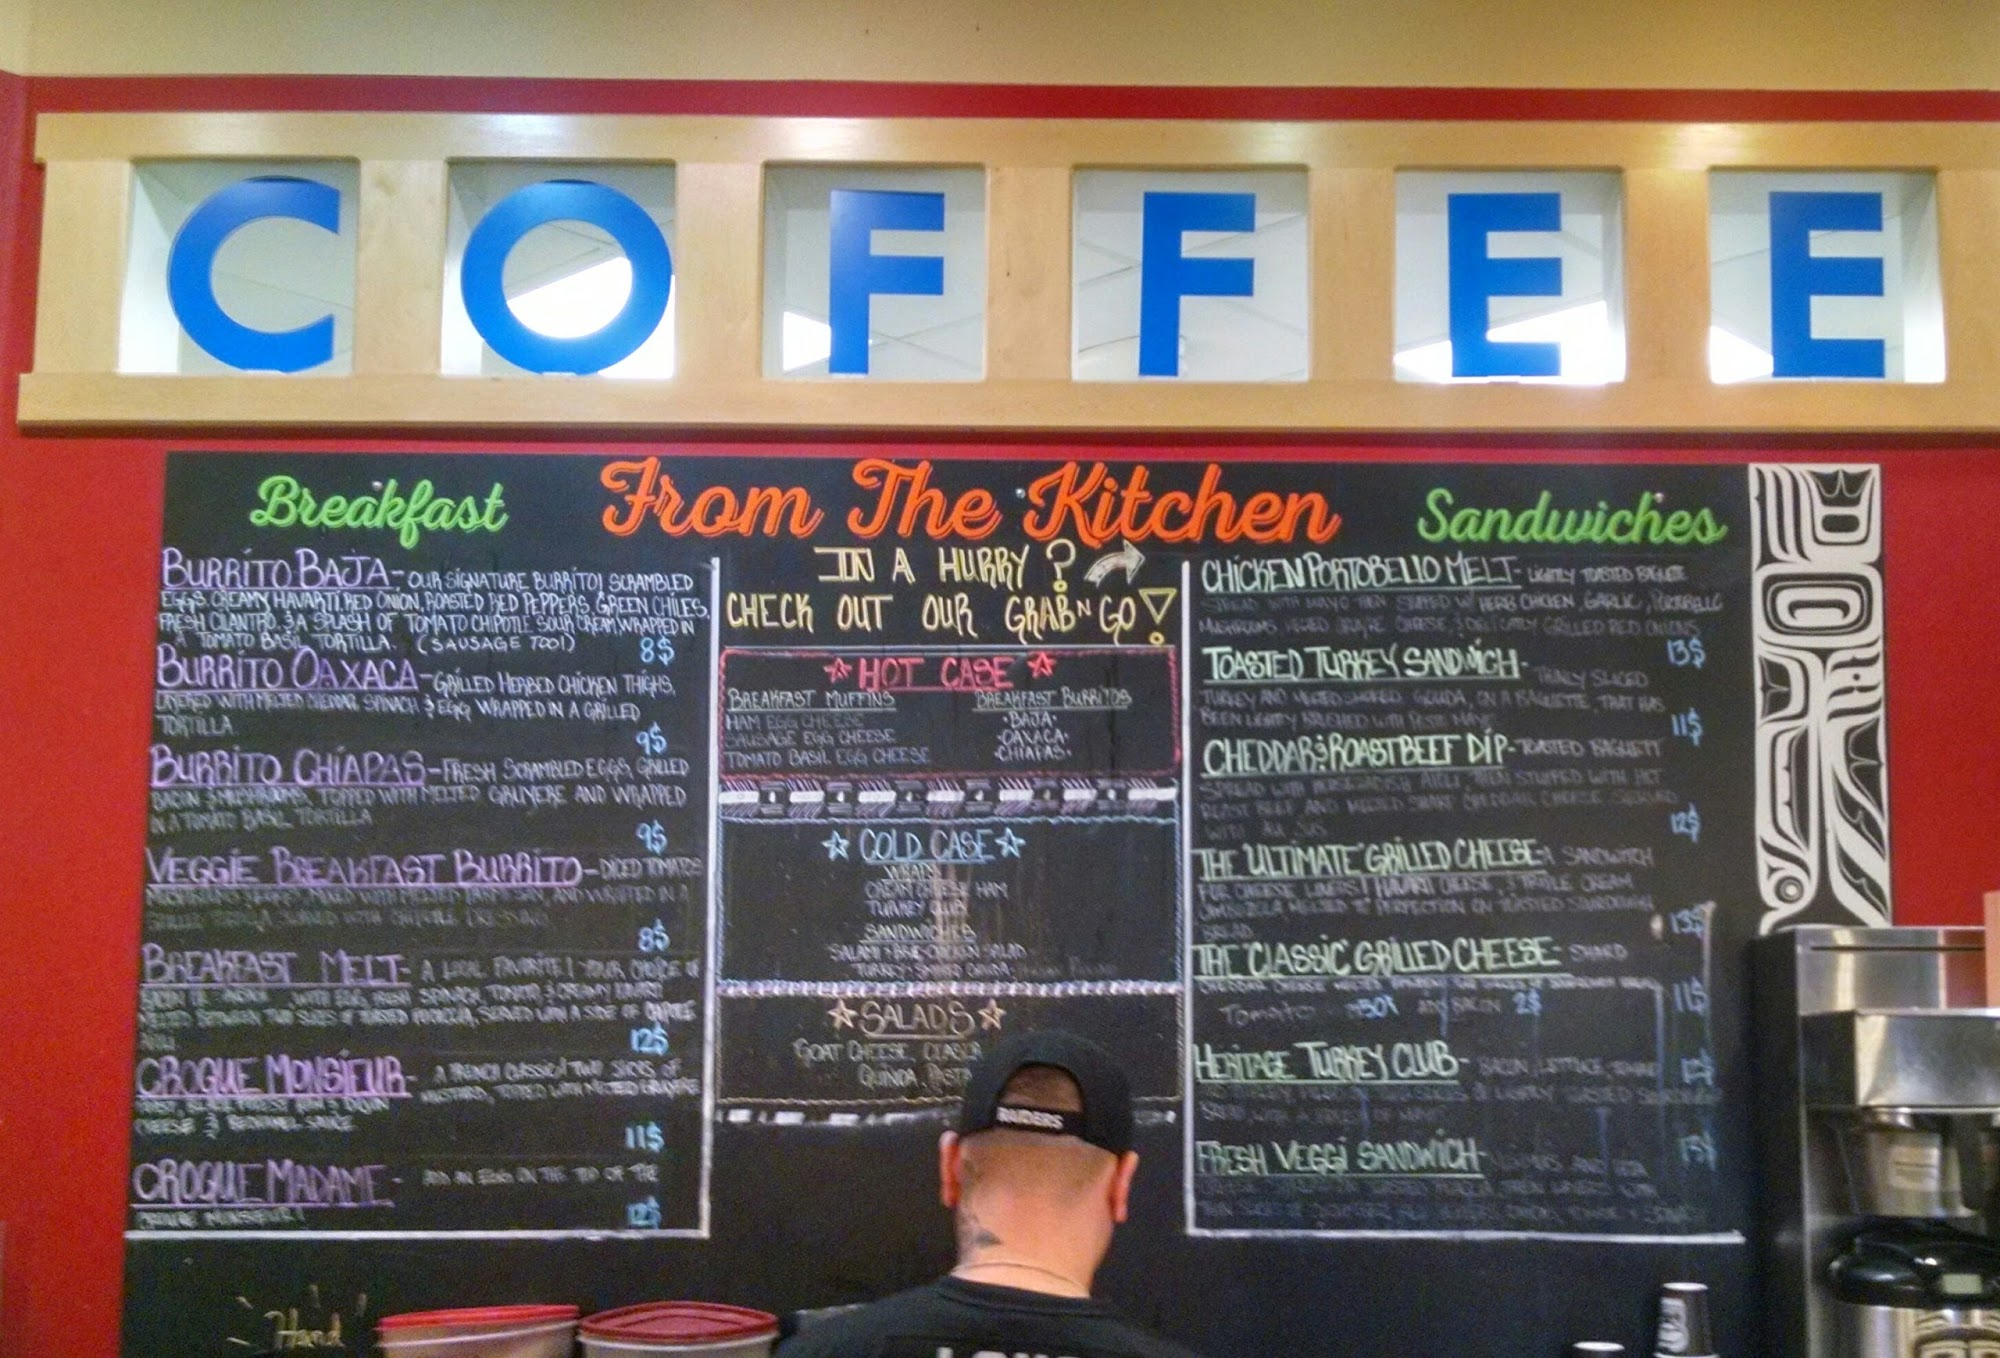 COFFEE
Breakfast
From The Kitchen
Sandwiches
BURRITO BAJA - OUR SIGNATURE BURRITO! SCRAMBLED
EGGS, CREAMY HAVARTI, RED ONION, ROASTED RED PEPPERS, GREEN CHILES,
FRESH CILANTRO, & A SPLASH OF TOMATO CHIPOTLE SOUR CREAM, WRAPPED IN
A TOMATO BASIL TORTILLA. (SAUSAGE TOO!)
8$
BURRITO OAXACA - GRILLED HERBED CHICKEN THIGHS,
LAYERED WITH MELTED CHEDDAR, SPINACH & EGG WRAPPED IN A GRILLED
TORTILLA.
9$
BURRITO CHIAPAS - FRESH SCRAMBLED EGGS, GRILLED
BACON & MUSHROOMS, TOPPED WITH MELTED GRUYERE AND WRAPPED
IN A TOMATO BASIL TORTILLA
9$
VEGGIE BREAKFAST BURRITO - DICED TOMATOS
AND WRAPPED IN A
SERVED WITH CHIPOTLE DRESSING
8$
BREAKFAST MELT - A LOCAL FAVORITE! YOUR CHOICE OF
WITH EGG, FRESH SPINACH, TOMATO, & CREAMY HAVARTI
MELTED BETWEEN TWO SLICES OF TOASTED FOCACCIA, SERVED WITH A SIDE OF CHIPOTLE
AIOLI
12$
CROQUE MONSIEUR - A FRENCH CLASSIC! TWO SLICES OF
MUSTARD, TOPPED WITH MELTED GRUYERE
CHEESE & BECHAMEL SAUCE
11$
CROQUE MADAME - ADD AN EGG ON THE TOP OF THE
CROQUE MONSIEUR!
12$
Hand
IN A HURRY?
CHECK OUT OUR GRAB N GO!
HOT CASE
BREAKFAST MUFFINS
HAM EGG CHEESE
SAUSAGE EGG CHEESE
TOMATO BASIL EGG CHEESE
BREAKFAST BURRITOS
•BAJA•
•OAXACA•
•CHIAPAS•
COLD CASE
WRAPS
CREAM CHEESE HAM
TURKEY CLUB
SANDWICHES
SALAMI & BRIE CHICKEN SALAD
TURKEY SMOKED GOUDA
SALADS
GOAT CHEESE,
QUINOA, PASTA
CHICKEN PORTOBELLO MELT - LIGHTLY TOASTED BAGUETTE
SPREAD WITH MAYO THEN STUFFED W/ HERB CHICKEN, GARLIC, PORTABELLO
MUSHROOMS, MELTED GRUYERE CHEESE, & DELICATLY GRILLED RED ONIONS
13$
TOASTED TURKEY SANDWICH - THINLY SLICED
TURKEY AND MELTED SMOKED GOUDA, ON A BAGUETTE, THAT HAS
BEEN LIGHTLY BRUSHED WITH PESTO MAYO
11$
CHEDDAR & ROAST BEEF DIP - TOASTED BAGUETT
SPREAD WITH HORSERADISH AIOLI, THEN STUFFED WITH HOT
ROAST BEEF AND MELTED SHARP CHEDDAR CHEESE SERVED
WITH AU JUS
12$
THE "ULTIMATE" GRILLED CHEESE - A SANDWICH
FOR CHEESE LOVERS! HAVARTI CHEESE, & TRIPLE CREAM
CAMBOZOLA, MELTED TO PERFECTION ON TOASTED SOURDOUGH
BREAD
13$
THE "CLASSIC" GRILLED CHEESE - SHARP
CHEDDAR CHEESE MELTED BETWEEN TWO SLICES OF SOURDOUGH BREAD
11$
Tomato 50¢ ADD BACON 2$
HERITAGE TURKEY CLUB - BACON, LETTUCE, TOMATO
12$
FRESH VEGGI SANDWICH - HUMMUS AND FETA
13$
RAIDERS